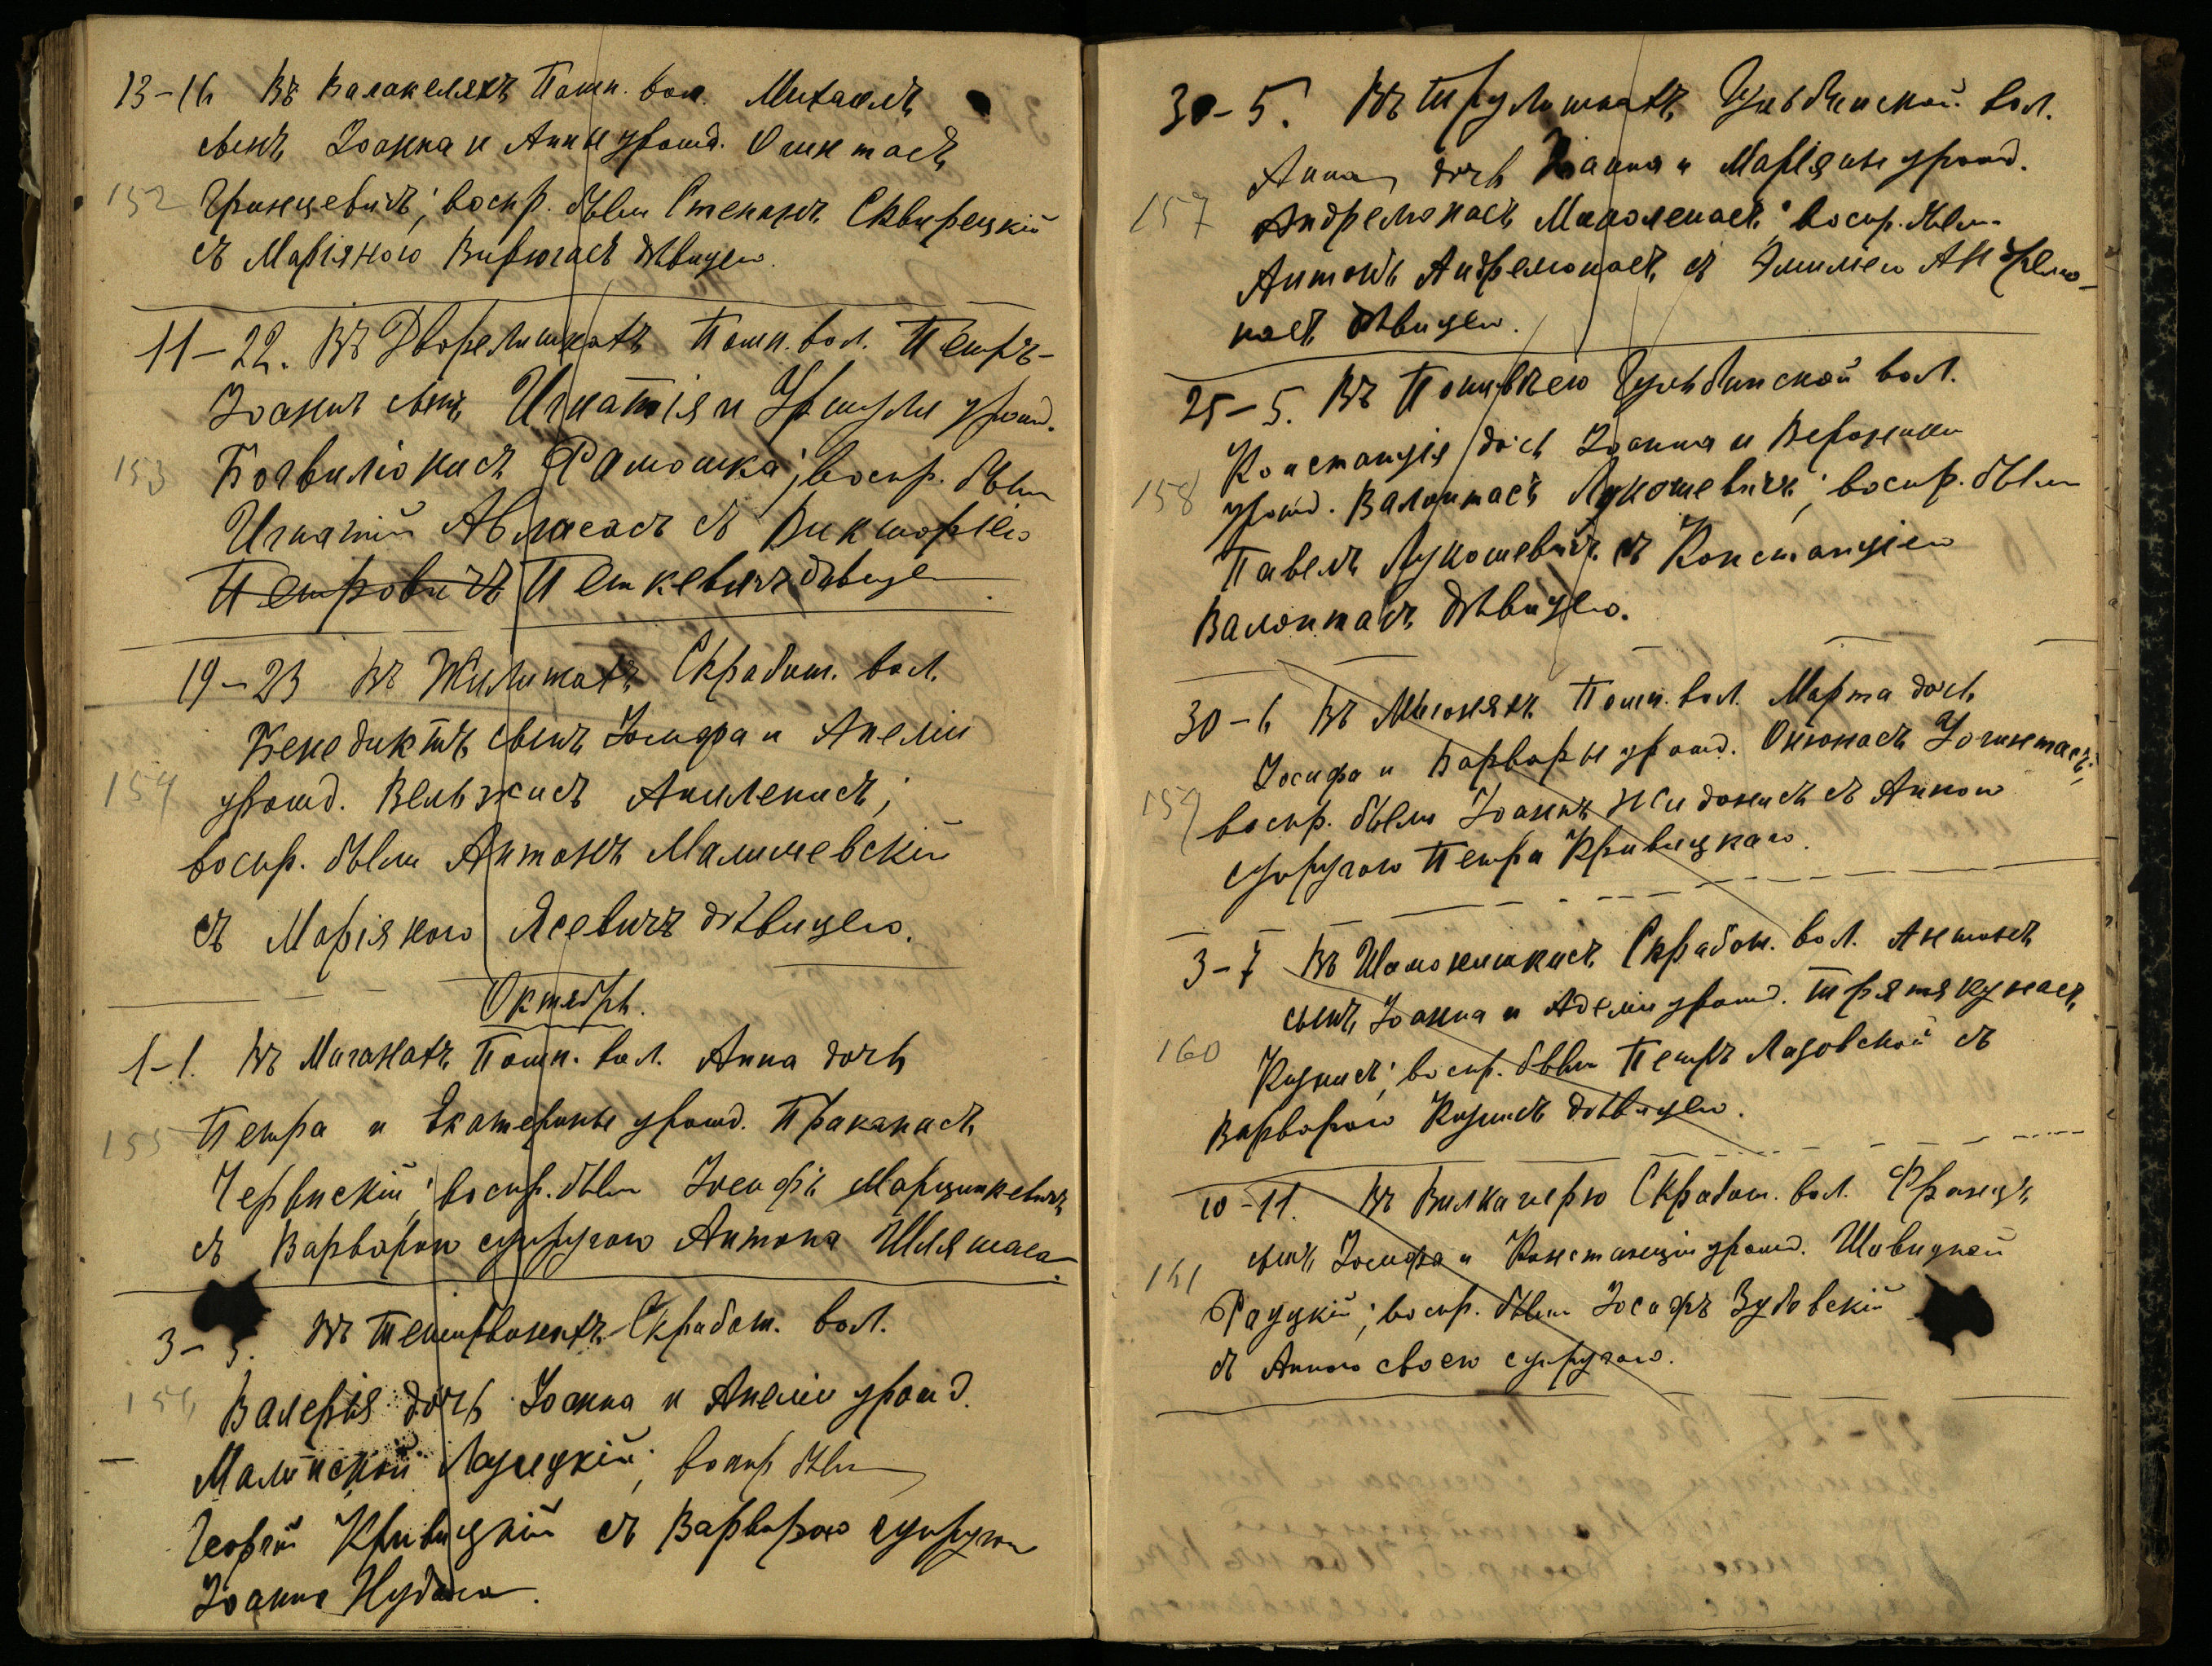 13-16 Въ Валакеляхъ Пошп. вол. Михаилъ
сынъ Іоанна и Анны урожд. Ошметасъ
152 Гринцевичъ; воспр. были Степанъ Сквирецкій
съ Маріяною Вирюгасъ дѣвицею.
11-22. Въ Дворелишкахъ Пошп. вол. Петръ-
Іоаннъ сынъ Игнатія и Уршули урожд.
153 Богвилюнисъ Рамошка; воспр. были
Игнатій Авласасъ съ Викторіею
Петровичъ Петкевичъ дѣвицею
19-23 Въ Жилишкахъ Скработ. вол.
Бенедиктъ сынъ Іосифа и Анеліи
154 урожд. Вельжисъ Аниленисъ;
воспр. были Антонъ Малишевскій
съ Маріяною Ясевичъ дѣвицею.
Октябрь.
1-1. Въ Миганахъ Пошп. вол. Анна дочь
155 Петра и Екатерины урожд. Праканисъ
Червнскій; воспр. были Іосифъ Марцинкевичъ
съ Варварою супругою Антона Шляшаса.
3-3. Въ Скработ. вол.
156 Валерія дочь Іоанна и Анеліи урожд.
Малинской Лазицкій; воспр были
Георгій Кривицкій съ Варварою супругою
Іоанна
30-5. Въ Трумишкахъ Гульбинской вол.
Анна дочь Іоанна и Маріяны урожд.
157 Андрелюнасъ Миколенасъ; воспр. были
Антонъ Андрелюнасъ съ Эмиліею Андрелю-
насъ дѣвицею.
25-5. Въ Гульбинской вол.
Констанція дочь Іоанна и Вероники
158 урожд. Валонтасъ Лукошевичъ; воспр. были
Павелъ Лукошевичъ съ Констанціею
Валонтасъ дѣвицею.
30-6 Въ Миюняхъ Пошп. вол. Марта дочь
Іосифа и Варвары урожд. Онюнасъ
159 воспр. были Іоаннъ Жидонисъ съ Анною
супругою Петра Кривицкаго.
3-7 Въ Шамонишкисъ Скработ. вол. Антонъ
сынъ Іоанна и Аделіи урожд. Трятякунасъ
160 Кузнисъ; воспр. были Петръ Лазовской съ
Варварою Кузнисъ дѣвицею.
10-11. Въ Вилкагирю Скработ. вол. Францъ
сынъ Іосифа и Констанціи урожд. Шавицкой
161 Рауцкій; воспр. были Іосифъ Зубовскій
съ Анною своею супругою.